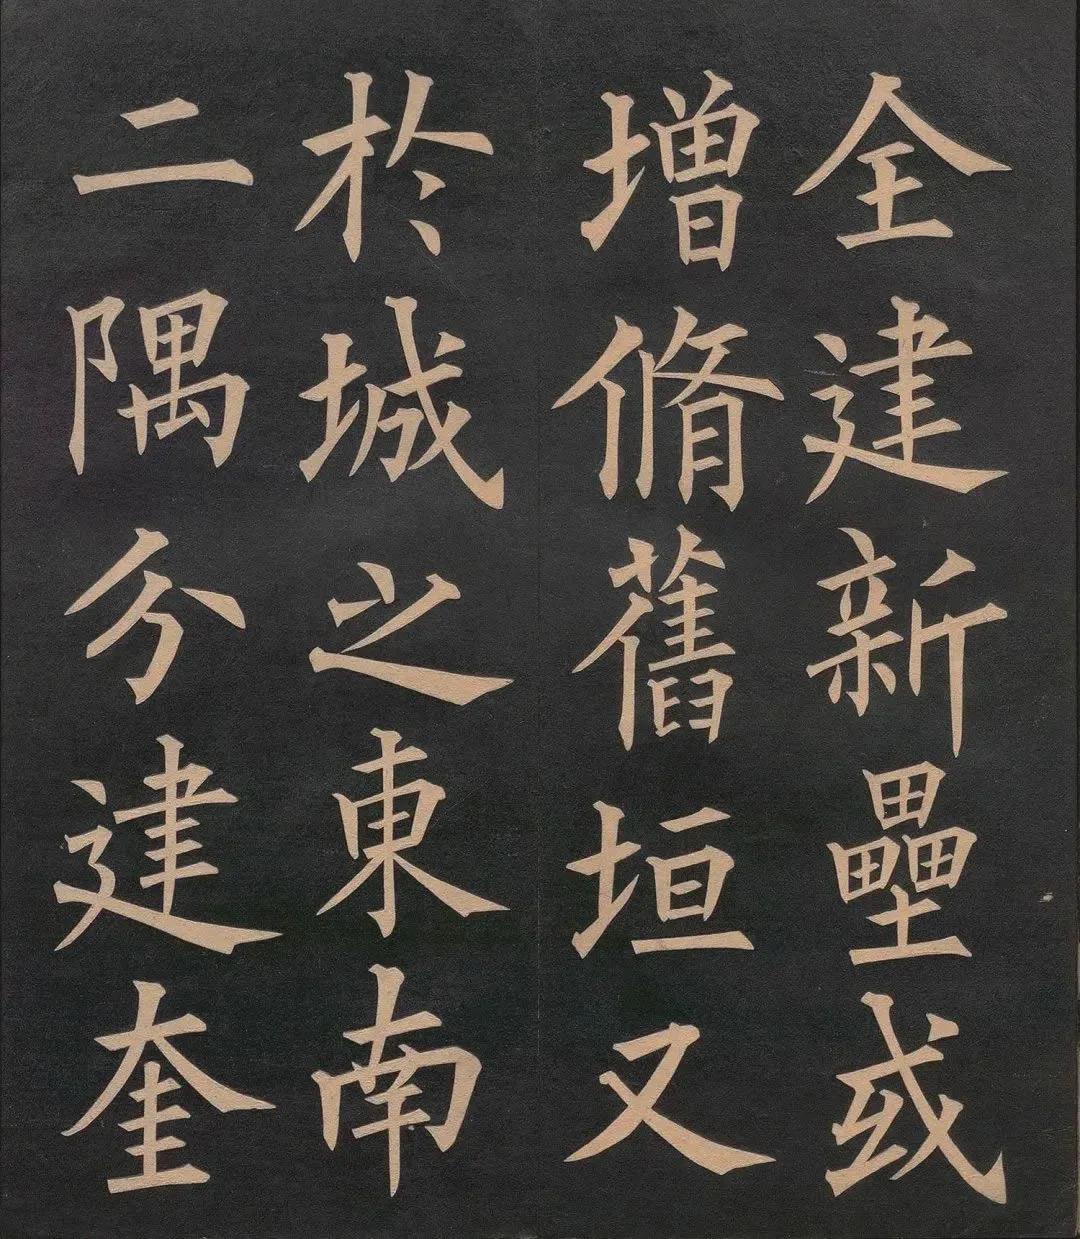 全建新壘或
増脩舊垣又
於城之東南
二隅分建奎